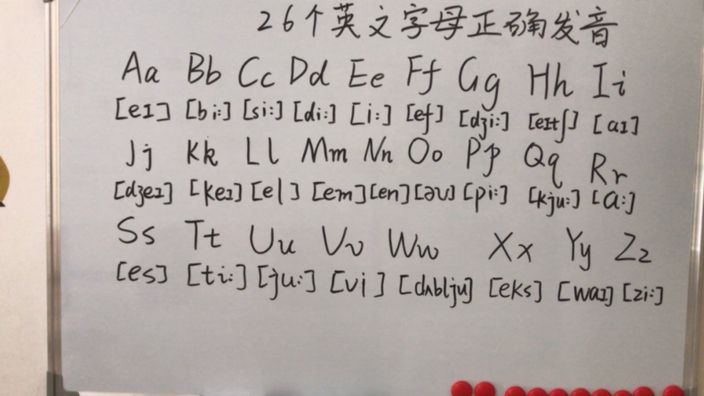 26个英文字母正确发音
Aa Bb Cc Dd Ee Ff Gg Hh Ii
[eɪ] [bi:] [si:] [di:] [i:] [ef] [dʒi:] [eɪtʃ] [aɪ]
Jj Kk Ll Mm Nn Oo Pp Qq Rr
[dʒeɪ] [keɪ] [el] [em] [en] [əʊ] [pi:] [kju:] [ɑ:]
Ss Tt Uu Vv Ww Xx Yy Zz
[es] [ti:] [ju:] [vi] [dʌblju] [eks] [waɪ] [zi:]